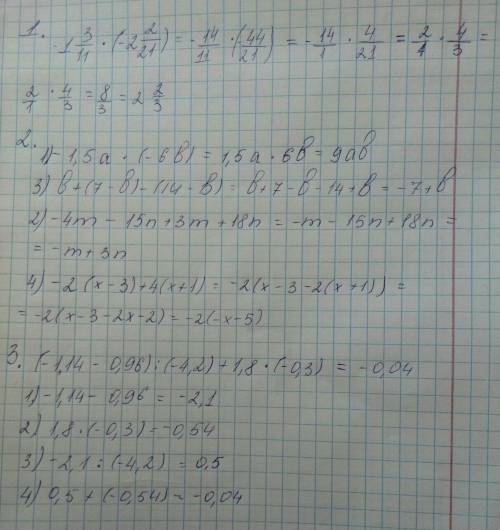 1. -1 3/11 · (-2 2/21) = -14/11 · (44/21) = -14/1 · 4/21 = 2/1 · 4/3 =
2/1 · 4/3 = 8/3 = 2 2/3
2. 1) -1,5a · (-6b) = 1,5a · 6b = 9ab
3) b+(7-b)-(14-b) = b+7-b-14+b = -7+b
2) -4m - 15n + 3m + 18n = -m - 15n + 18n =
= -m+3n
4) -2(x-3)+4(x+1) = -2(x-3-2(x+1)) =
= -2(x-3-2x-2) = -2(-x-5)
3. (-1,14 - 0,96) : (-4,2) + 1,8 · (-0,3) = -0,04
1) -1,14 - 0,96 = -2,1
2) 1,8 · (-0,3) = -0,54
3) -2,1 : (-4,2) = 0,5
4) 0,5 + (-0,54) = -0,04